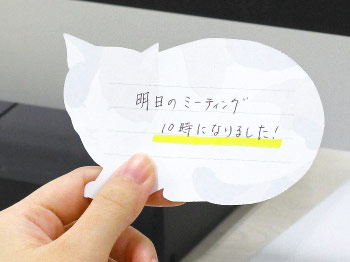 明日のミーティング
10時になりました!